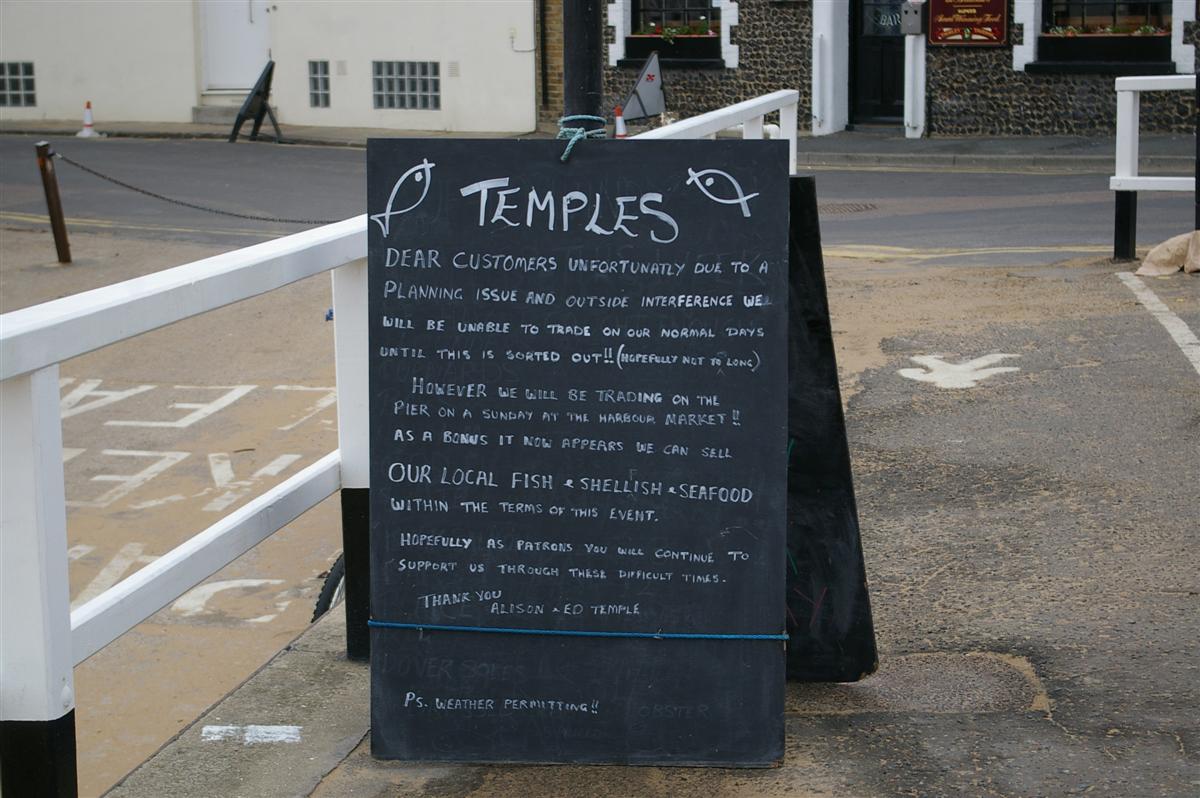 BAR
Award Winning Food
TEMPLES
DEAR CUSTOMERS UNFORTUNATLY DUE TO A
PLANNING ISSUE AND OUTSIDE INTERFERENCE WE
WILL BE UNABLE TO TRADE ON OUR NORMAL DAYS
UNTIL THIS IS SORTED OUT!! (HOPEFULLY NOT TO LONG)
HOWEVER WE WILL BE TRADING ON THE
PIER ON A SUNDAY AT THE HARBOUR MARKET!!
AS A BONUS IT NOW APPEARS WE CAN SELL
OUR LOCAL FISH & SHELLISH & SEAFOOD
WITHIN THE TERMS OF THIS EVENT.
HOPEFULLY AS PATRONS YOU WILL CONTINUE TO
SUPPORT US THROUGH THESE DIFFICULT TIMES.
THANK YOU
ALISON & ED TEMPLE
DOVER SOLES
PS. WEATHER PERMITTING!!
OBSTER